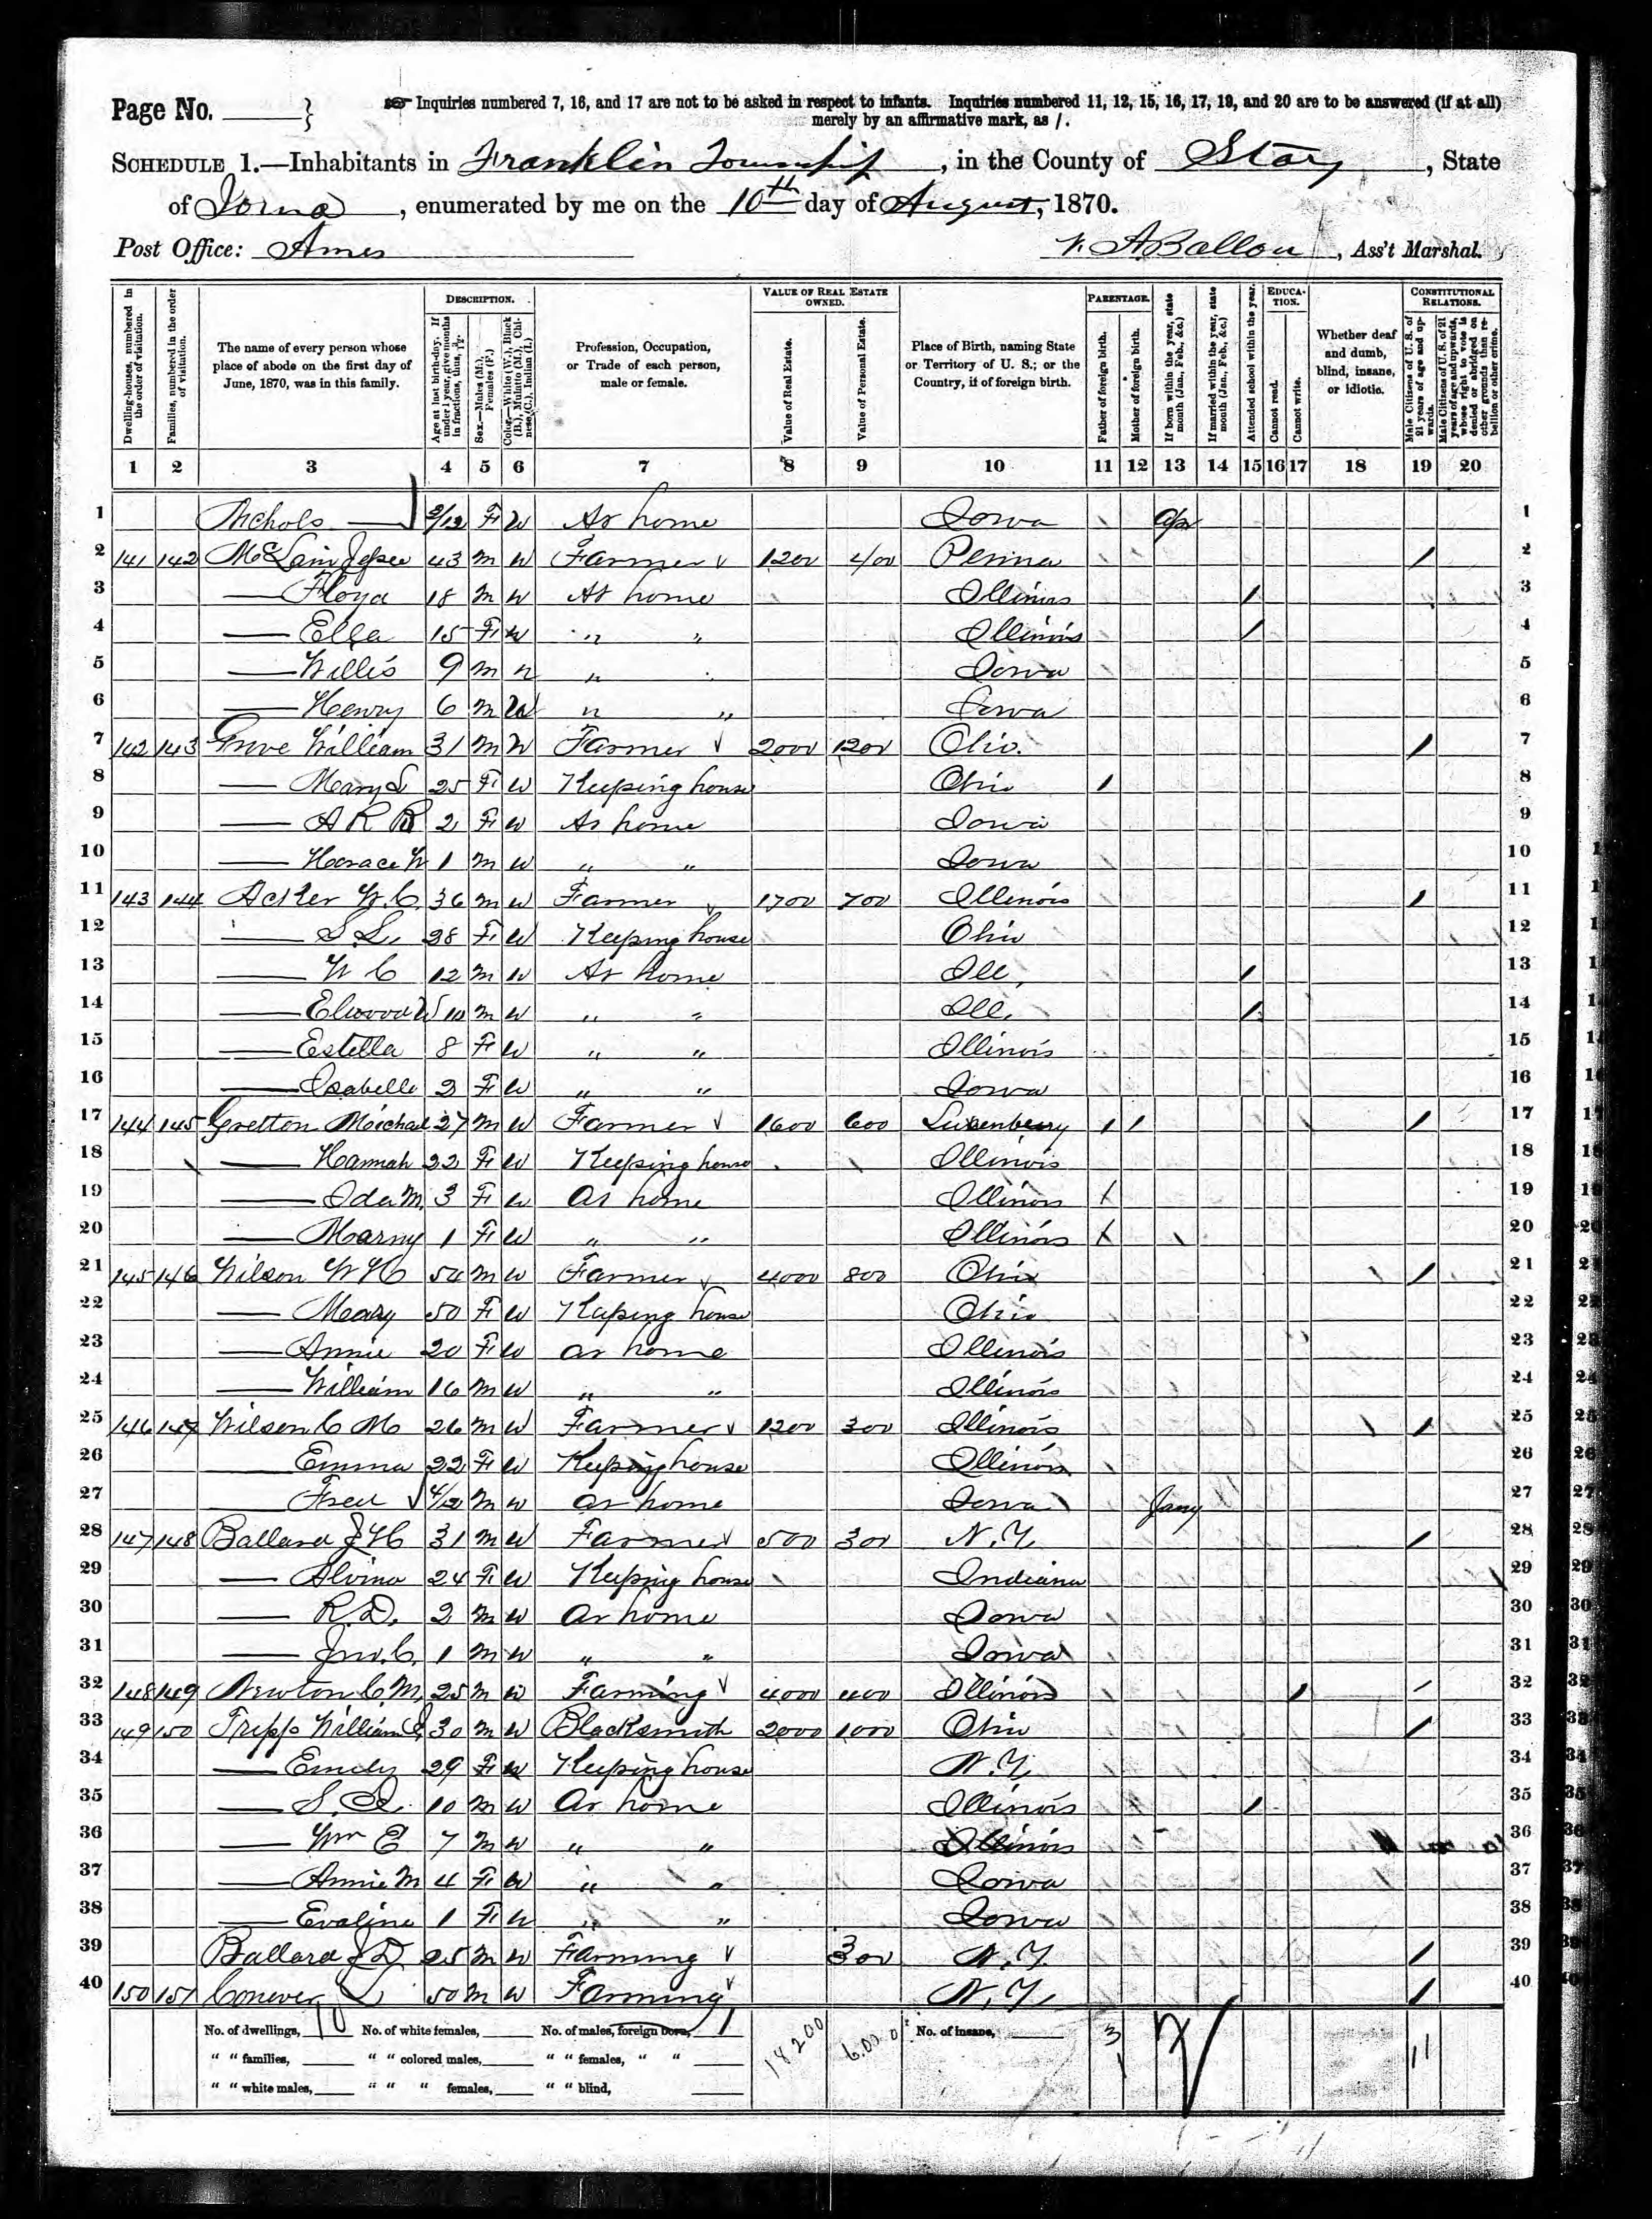 Page No. ______} Inquiries numbered 7, 16, and 17 are not to be asked in respect to infants. Inquiries numbered 11, 12, 15, 16, 17, 19, and 20 are to be answered (if at all)
merely by an affirmative mark, as /.
SCHEDULE 1.—Inhabitants in Franklin Township, in the County of Story, State
of Iowa, enumerated by me on the 10th day of August, 1870.
Post Office: Ames A Ballou, Ass't Marshal.
Dwelling-houses, numbered in the order of visitation.
Families, numbered in the order of visitation.
The name of every person whose place of abode on the first day of June, 1870, was in this family.
DESCRIPTION.
Age at last birth-day. If under 1 year, give months in fractions, thus, 3/12.
Sex.—Males (M.), Females (F.)
Color.—White (W.), Black (B.), Mulatto (M.), Chinese, (C.), Indian (I.)
Profession, Occupation, or Trade of each person, male or female.
VALUE OF REAL ESTATE OWNED.
Value of Real Estate.
Value of Personal Estate.
Place of Birth, naming State or Territory of U. S.; or the Country, if of foreign birth.
PARENTAGE.
Father of foreign birth.
Mother of foreign birth.
If born within the year, state month (Jan., Feb., &c.)
If married within the year, state month (Jan., Feb., &c.)
Attended school within the year.
EDUCATION.
Cannot read.
Cannot write.
Whether deaf and dumb, blind, insane, or idiotic.
CONSTITUTIONAL RELATIONS.
Male Citizens of U. S. of 21 years of age and upwards.
Male Citizens of U. S. of 21 years of age and upwards, whose right to vote is denied or abridged on other grounds than rebellion or other crime.
1 2 3 4 5 6 7 8 9 10 11 12 13 14 15 16 17 18 19 20
1 Nichols — /12 F W At home Iowa Apr 1
2 141 142 McLain Jesse 43 M W Farmer 1200 400 Penna / 2
3 — Floyd 18 M W At home Illinois / 3
4 — Ella 15 F W " " Illinois / 4
5 — Willis 9 M " " Iowa 5
6 — Henry 6 M W " " Iowa 6
7 142 143 Grove William 31 M W Farmer 2000 1200 Ohio. / 7
8 — Mary L 25 F W Keeping house Ohio / 8
9 — A R B 2 F W At home Iowa 9
10 — Horace W 1 M W " " Iowa 10
11 143 144 Acker W. C. 36 M W Farmer 1700 700 Illinois / 11
12 — S L. 28 F W Keeping house Ohio 12
13 — W C 12 M W At home Ill, / 13
14 — Elwood W 10 M W " " Ill, / 14
15 — Estella 8 F W " " Illinois 15
16 — Isabelle 2 F W " " Iowa 16
17 144 145 Gretton Michael 27 M W Farmer 1600 600 Luxenberry / / / 17
18 — Hannah 22 F W Keeping house Illinois 18
19 — Ida M. 3 F W At home Illinois / 19
20 — Marny 1 F W " " Illinois / 20
21 145 146 Wilson W H 54 M W Farmer 4000 800 Ohio / 21
22 — Mary 50 F W Keeping house Ohio 22
23 — Annie 20 F W At home Illinois 23
24 — William 16 M W " " Illinois 24
25 146 147 Wilson C M 26 M W Farmer 1200 300 Illinois / 25
26 — Emma 22 F W Keeping house Illinois 26
27 — Fred 4/12 M W At home Iowa Jany 27
28 147 148 Ballard J H 31 M W Farmer 500 300 N. Y. / 28
29 — Alvina 24 F W Keeping house Indiana 29
30 — R. D. 2 M W At home Iowa 30
31 — Jno. C. 1 M W " " Iowa 31
32 148 149 Newton C. M. 25 M W Farming 4000 400 Illinois / / 32
33 149 150 Tripp William J. 30 M W Blacksmith 2000 1000 Ohio / 33
34 — Emily 29 F W Keeping house N. Y. 34
35 — S. 10 M W At home Illinois / 35
36 — Wm E 7 M W " " Illinois 36
37 — Annie M 4 F W " " Iowa 37
38 — Evaline 1 F W " " Iowa 38
39 Ballard J D 25 M W Farming 300 N. Y. / 39
40 150 151 Conever L 50 M W Farming N. Y. / 40
No. of dwellings, 10 No. of white females, ____ No. of males, foreign born, 1 18200 6.000 No. of insane, ____ 3 1 2 11
" " families, ____ " " colored males, ____ " " females, " " ____
" " white males, ____ " " " females, ____ " " blind, ____